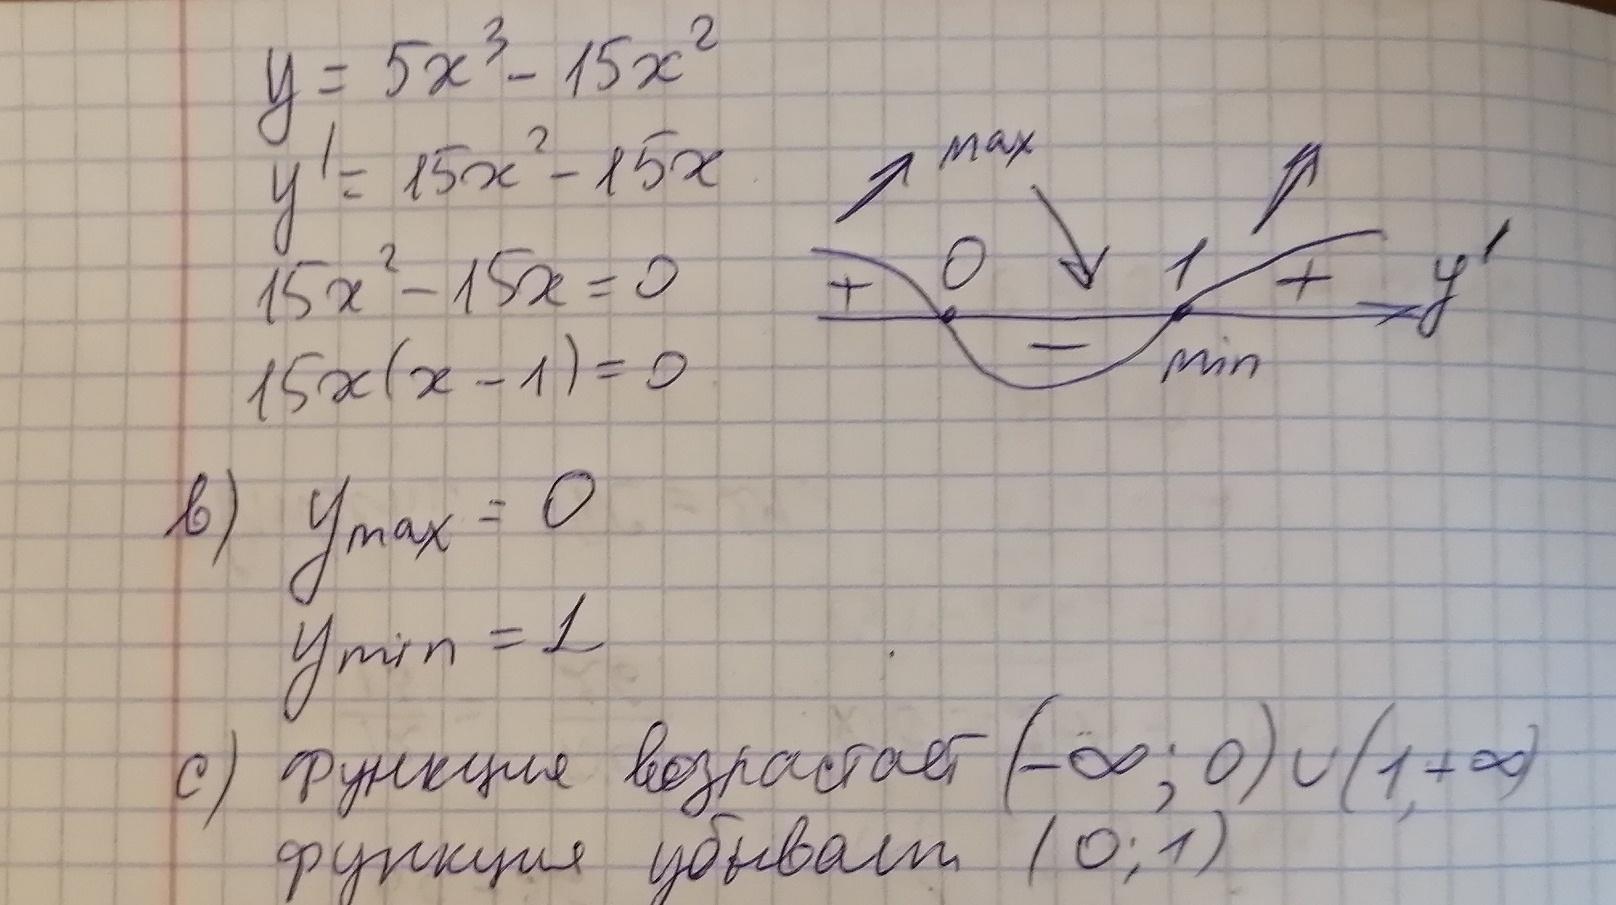 y = 5x³ - 15x²
y' = 15x² - 15x
15x² - 15x = 0
15x(x - 1) = 0
max
0 1
+ - + y'
min
b) y max = 0
y min = 1
c) функция возрастает (-∞; 0) ∪ (1, +∞)
функция убывает (0; 1)